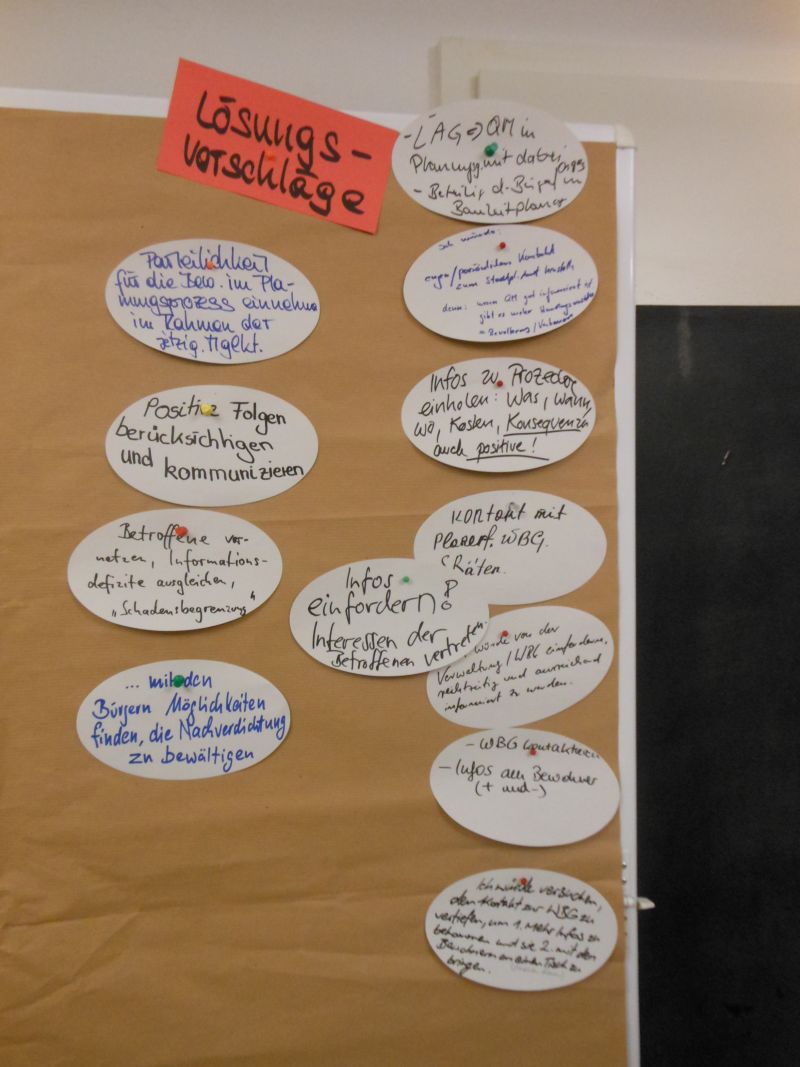 Lösungs-
vorschläge
Parteilichkeit
für die Bew. im Pla-
nungsprozess einnehmen
im Rahmen der
jetzig. Mglkt.
Positive Folgen
berücksichtigen
und kommunizieren
Betroffene ver-
netzen, Informations-
defizite ausgleichen,
"Schadensbegrenzung"
... mit den
Bürgern Möglichkeiten
finden, die Nachverdichtung
zu bewältigen
- LAG => QM in
Planung. mit dabei
- Beteilig. d. Bürger in
Bauleitplanung
Ich würde:
engen/persönlichen Kontakt
zum Stadtpl. Amt
denn: wenn QM gut informiert ist
gibt es mehr
Infos zu Prozedere
einholen: Was, wann,
wo, Kosten, Konsequenzen
auch positive!
Kontakt mit
Planern, WBG.
Räten.
Infos
einfordern!
Interessen der
Betroffenen vertreten.
würde von der
Verwaltung/WBG einfordern,
rechtzeitig und ausreichend
informiert zu werden.
- WBG kontaktieren
- Infos an Bewohner
(+ und -)
Ich würde versuchen,
den Kontakt zur WBG zu
vertiefen, um 1. Mehr Infos zu
bekommen und sie 2. mit den
Bewohnern an einen Tisch zu
bringen.